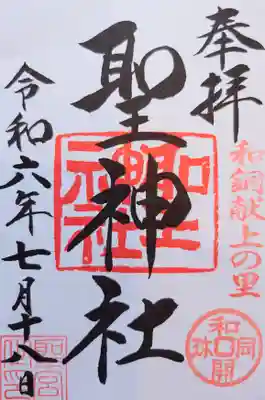 奉拝
和銅献上の里
和同開珎
聖神社
聖神社
令和六年七月十八日